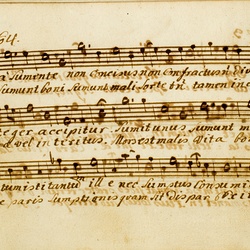 64.
a Sumente non Concisus non Confractus n. div
Sumunt boni Sumunt mali sorte tamen ine
teger accipitur Sumit unus Sumunt m
vel interitus. Mors est malis vita bo
tum isti tantū ille nec Sumptus Consumi
e paris Sumptionis quam sit dispar exit